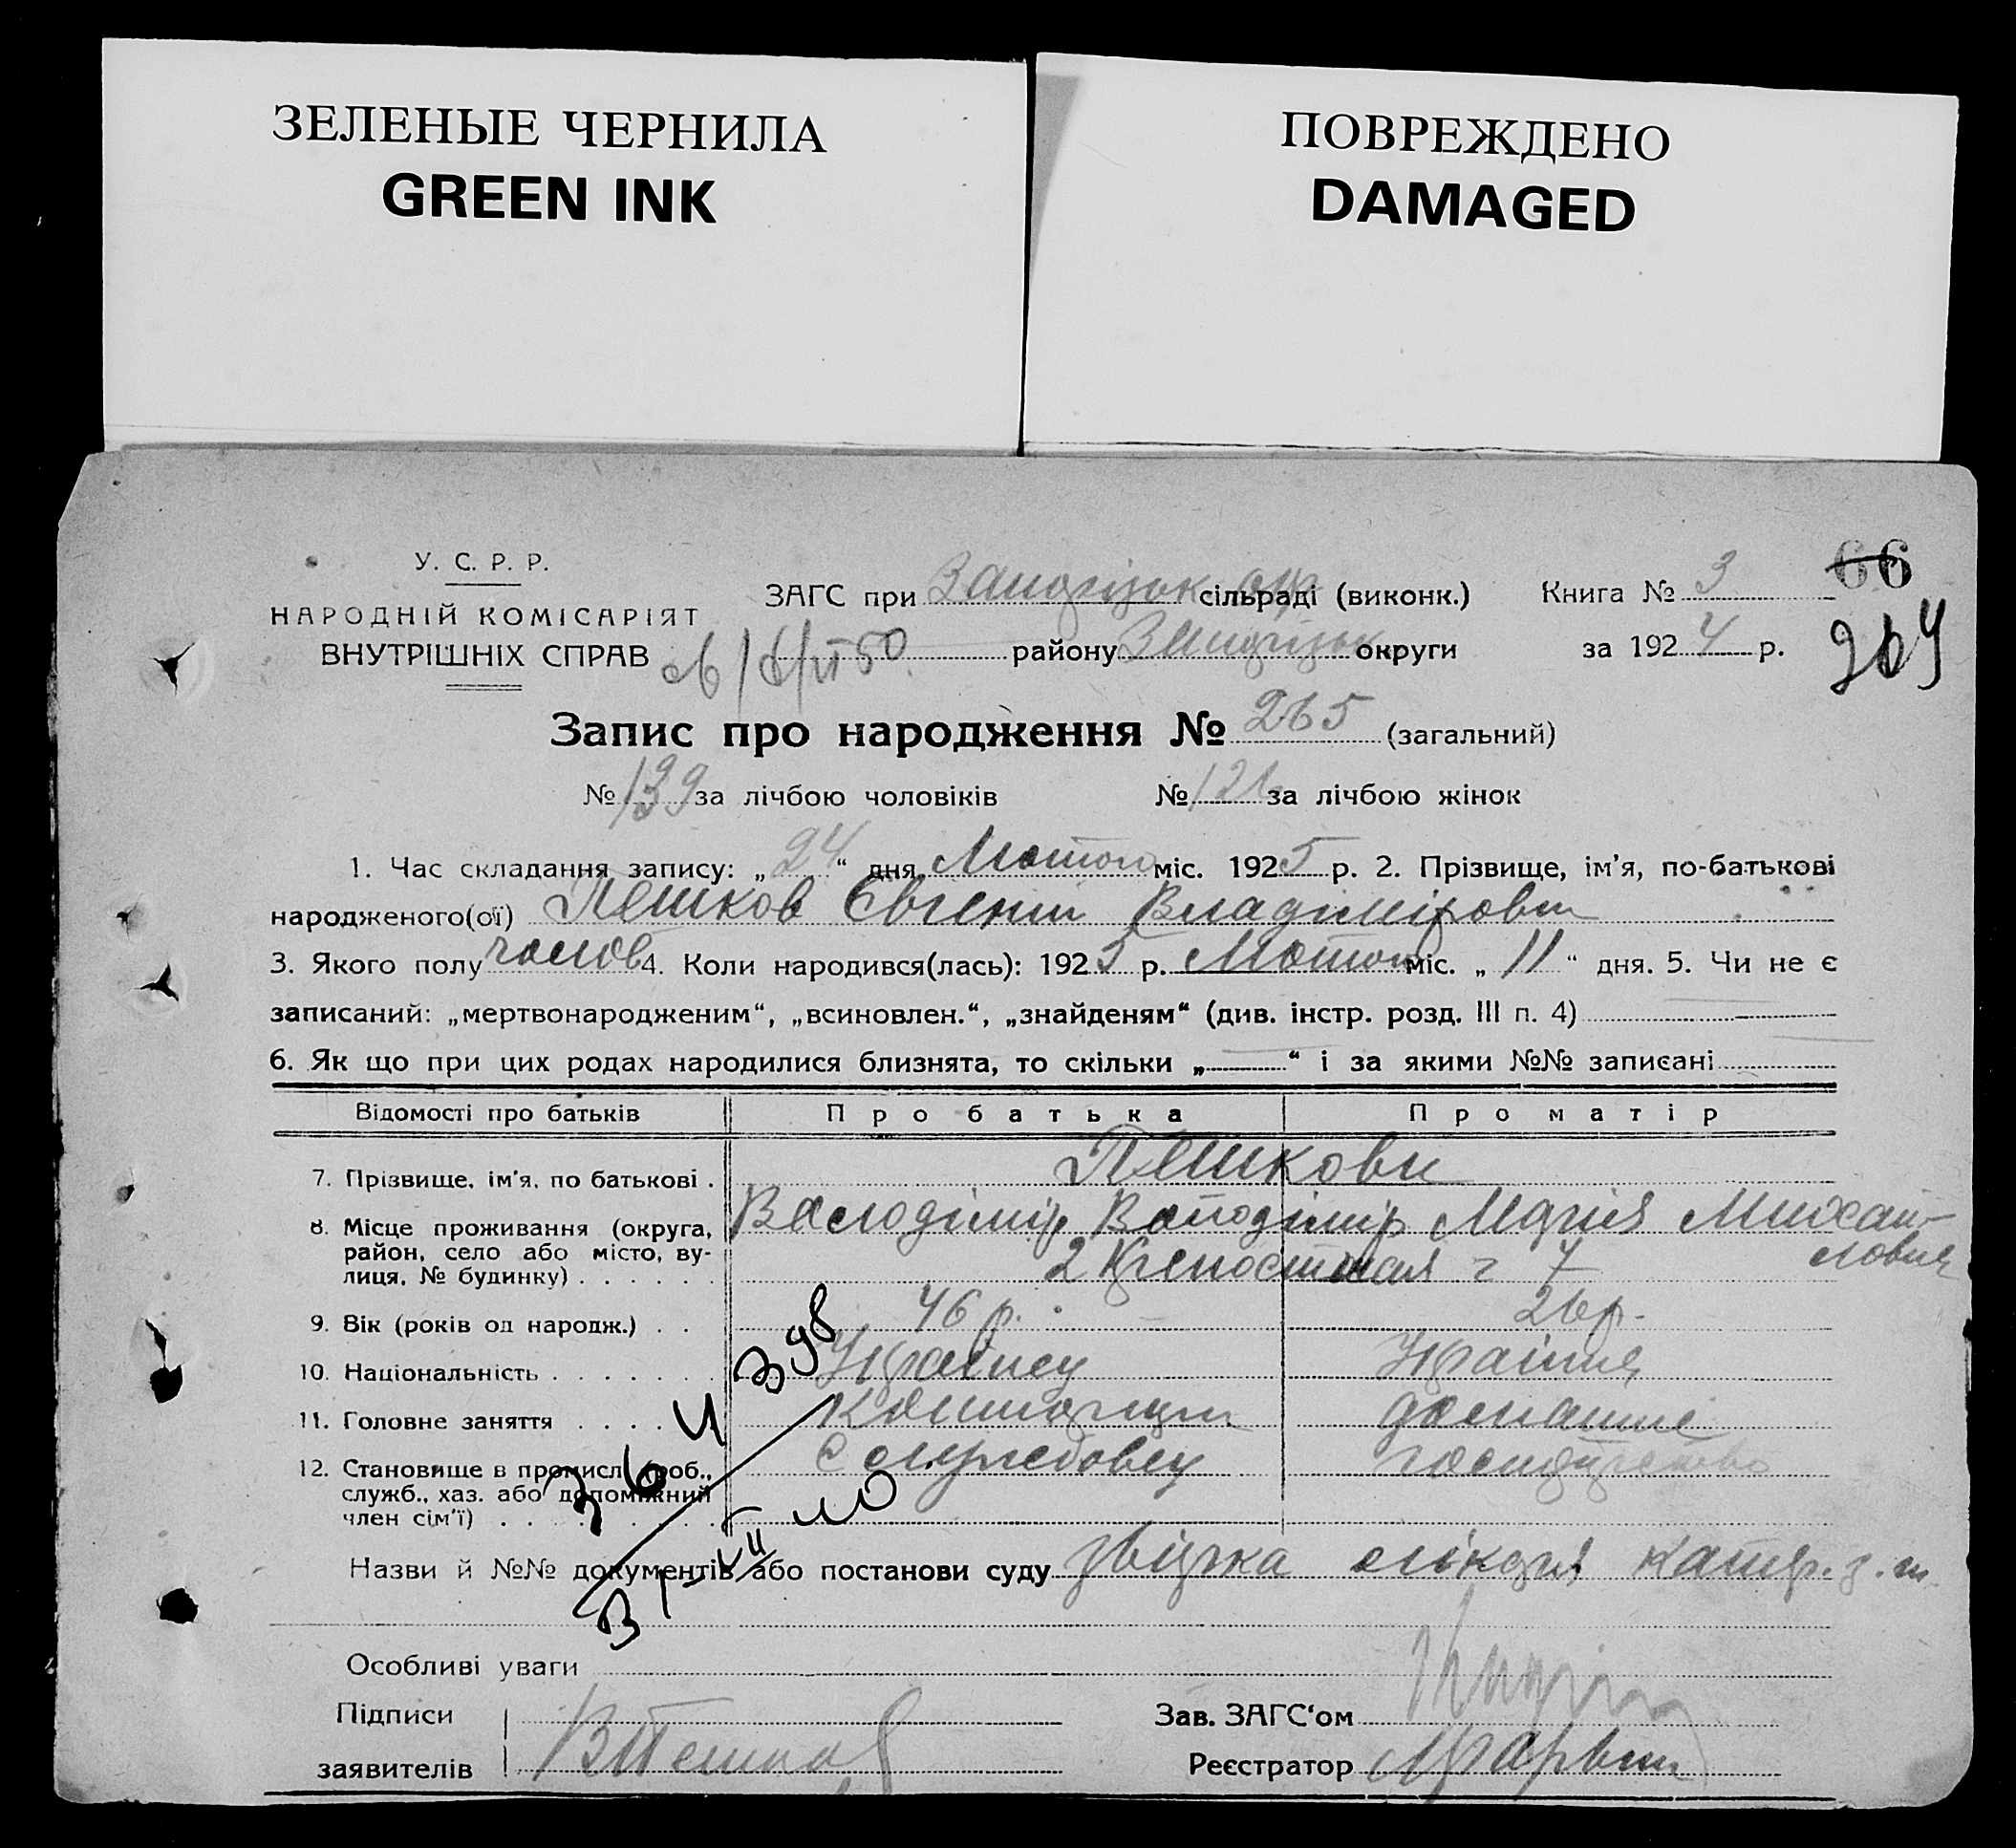 ЗЕЛЕНЫЕ ЧЕРНИЛА
GREEN INK
ПОВРЕЖДЕНО
DAMAGED
У. С. Р. Р.
НАРОДНІЙ КОМІСАРІЯТ
ВНУТРІШНІХ СПРАВ
ЗАГС при сільраді (виконк.)
району округи
Книга № 3
за 1924 р.
66
264
Запис про народження № 265 (загальний)
№ 139 за лічбою чоловіків № за лічбою жінок
1. Час складання запису: „24“ дня Лютого міс. 1925 р. 2. Прізвище, ім'я, по-батькові
народженого(ої) Пешков Євгеній Владімірович
3. Якого полу чолов 4. Коли народився(лась): 1925 р. Лютого міс. „11“ дня. 5. Чи не є
записаний: „мертвонародженим“, „всиновлен.“, „знайденям“ (див. інстр. розд. III п. 4)
6. Як що при цих родах народилися близнята, то скільки „ “ і за якими №№ записані
Відомості про батьків Про батька Про матір
7. Прізвище, ім'я, по батькові . Пешкови
8. Місце проживання (округа, район, село або місто, вулиця, № будинку) . . . . . . Володімір Володімір Марія Михайловна
2 Крепостная 7
9. Вік (років од народж.) . . 46 р. 26 р.
10. Національність . . . . . . . Українец Українка
11. Головне заняття . . . . . домашнє
12. Становище в промисл. (роб., служб., хаз. або допоміжний член сім'ї) . . . . . . . . Служебовец господарство
Назви й №№ документів або постанови суду звідка лікаря
Особливі уваги
Підписи
заявителів В Пешков
Зав. ЗАГС'ом
Реєстратор